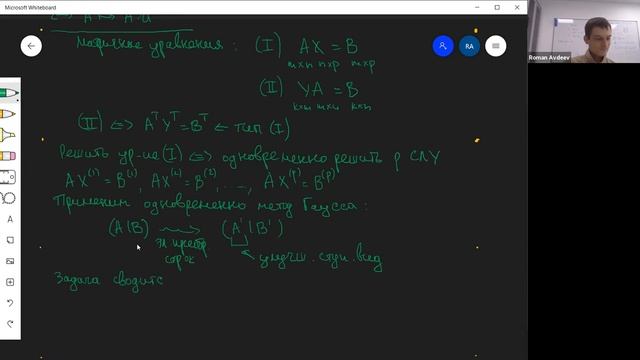 Microsoft Whiteboard
RA
Roman Avdeev
Матричные уравнения : (I) AX = B
m×n n×p m×p
(II) YA = B
k×m m×n k×n
(II) ⟺ AᵀYᵀ = Bᵀ ← тип (I)
Решить ур-ие (I) ⟺ одновременно решить p СЛУ
AX⁽¹⁾ = B⁽¹⁾, AX⁽²⁾ = B⁽²⁾, ..., AX⁽ᵖ⁾ = B⁽ᵖ⁾
Применим одновременно метод Гаусса :
(A|B) ⇝ (A'|B')
эл. преобр. строк
улучш. ступ. вид
Задача сводитс